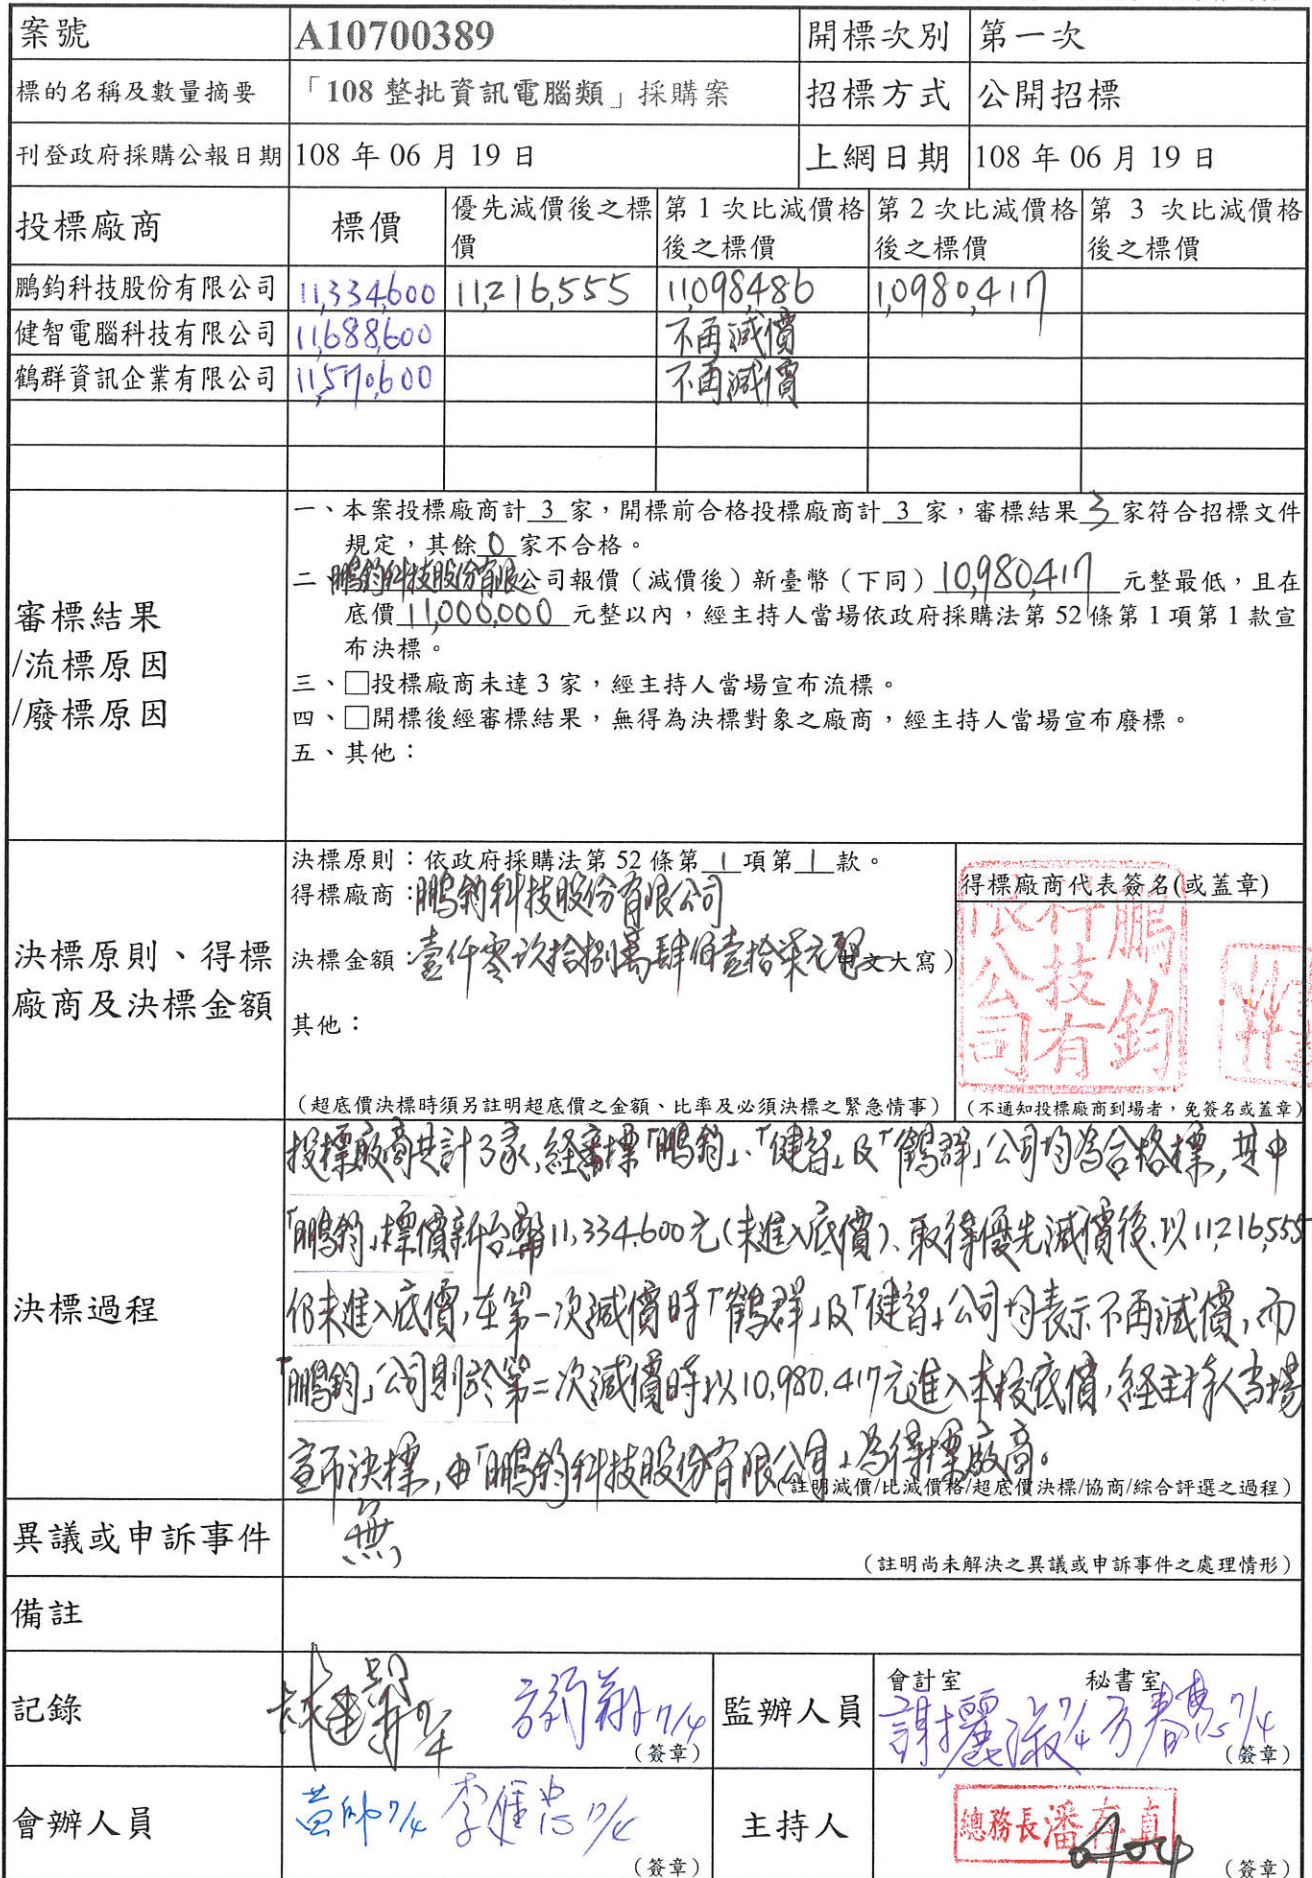 案號 A10700389 開標次別 第一次
標的名稱及數量摘要 「108 整批資訊電腦類」採購案 招標方式 公開招標
刊登政府採購公報日期 108 年 06 月 19 日 上網日期 108 年 06 月 19 日
投標廠商 標價 優先減價後之標價 第 1 次比減價格後之標價 第 2 次比減價格後之標價 第 3 次比減價格後之標價
鵬鈞科技股份有限公司 11,334,600 11,216,555 11,098,486 10,980,417
健智電腦科技有限公司 11,688,600 不再減價
鶴群資訊企業有限公司 11,570,600 不再減價
審標結果
/流標原因
/廢標原因
一、本案投標廠商計 3 家,開標前合格投標廠商計 3 家,審標結果 3 家符合招標文件
規定,其餘 0 家不合格。
二 鵬鈞科技股份有限公司報價(減價後)新臺幣(下同) 10,980,417 元整最低,且在
底價 11,000,000 元整以內,經主持人當場依政府採購法第 52 條第 1 項第 1 款宣
布決標。
三、□投標廠商未達 3 家,經主持人當場宣布流標。
四、□開標後經審標結果,無得為決標對象之廠商,經主持人當場宣布廢標。
五、其他:
決標原則、得標
廠商及決標金額
決標原則:依政府採購法第 52 條第 1 項第 1 款。
得標廠商:鵬鈞科技股份有限公司
決標金額:壹仟零玖拾捌萬肆佰壹拾柒元整 中文大寫)
其他:
(超底價決標時須另註明超底價之金額、比率及必須決標之緊急情事)
得標廠商代表簽名(或蓋章)
鵬鈞
科技有
限公司
(不通知投標廠商到場者,免簽名或蓋章)
決標過程
投標廠商共計3家,經審標「鵬鈞」、「健智」及「鶴群」公司均為合格標,其中
「鵬鈞」標價新台幣11,334,600元(未進入底價)、取得優先減價後,以11,216,555
仍未進入底價,在第一次減價時「鶴群」及「健智」公司均表示不再減價,而
「鵬鈞」公司則於第二次減價時以10,980,417元進入本校底價,經主持人當場
宣布決標,由「鵬鈞科技股份有限公司」為得標廠商。
(註明減價/比減價格/超底價決標/協商/綜合評選之過程)
異議或申訴事件 無
(註明尚未解決之異議或申訴事件之處理情形)
備註
記錄 7/4 7/4 (簽章) 監辦人員 會計室 秘書室
謝麗淑 7/4 方春惠 7/4 (簽章)
會辦人員 黃帥 7/4 李進忠 7/4 (簽章) 主持人 總務長潘存真 (簽章)